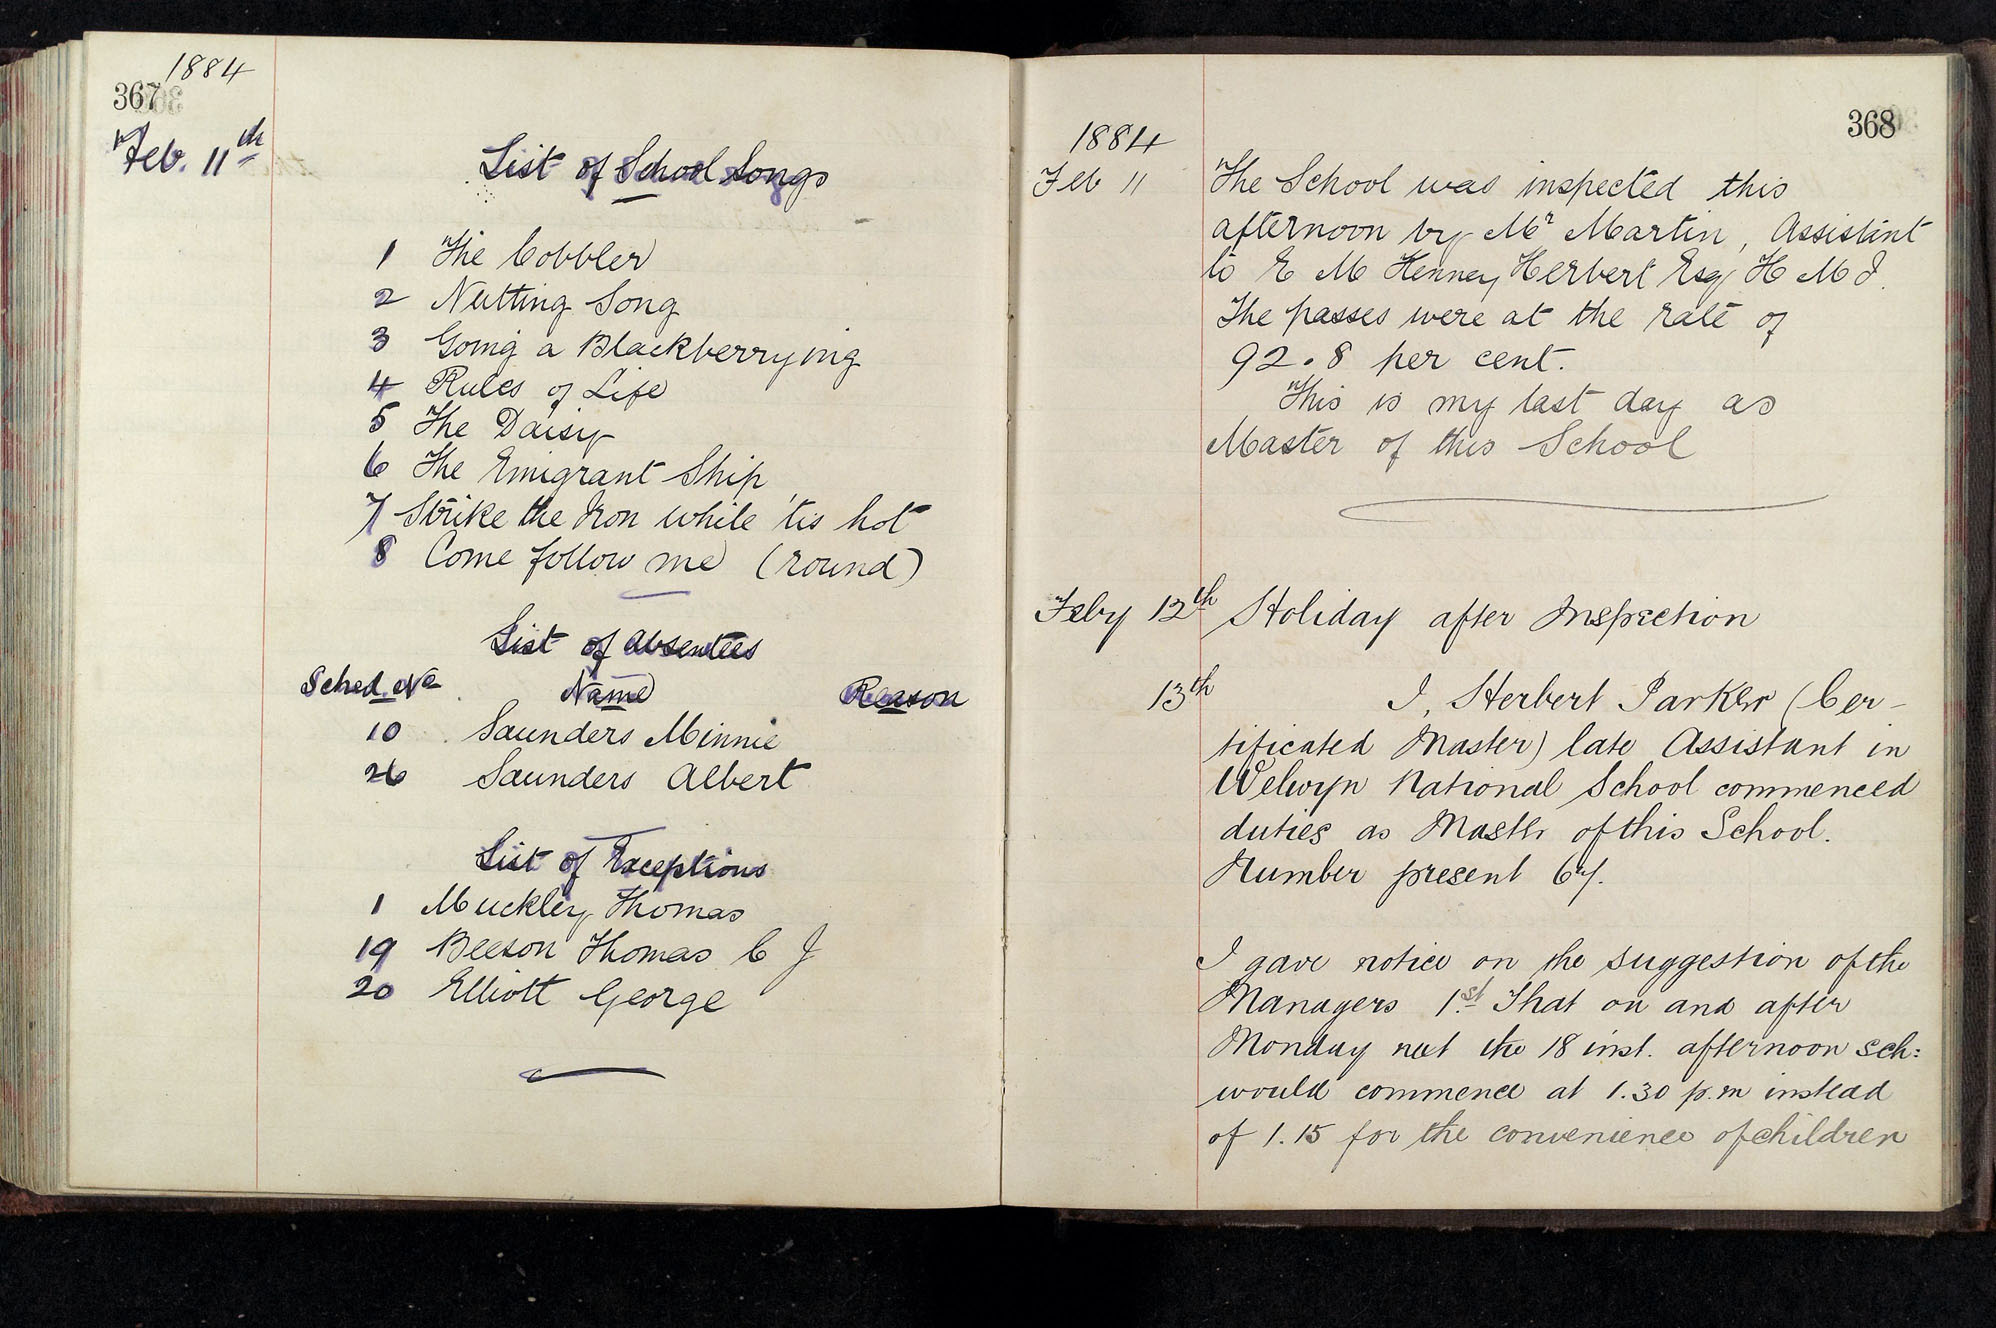 1884
367
Feb. 11th
List of School Songs
1 The Cobbler
2 Nutting Song
3 Going a Blackberrying
4 Rules of Life
5 The Daisy
6 The Emigrant Ship
7 Strike the Iron while 'tis hot
8 Come follow me (round)
List of Absentees
Sched. No Name Reason
10 Saunders Minnie
26 Saunders Albert
List of Exceptions
1 Muckley Thomas
19 Beeson Thomas C J
20 Elliott George
368
1884
Feb 11 The School was inspected this
afternoon by Mr Martin, Assistant
to E M Kenney Herbert Esq H M I.
The passes were at the rate of
92.8 per cent.
This is my last day as
Master of this School
Feby 12th Holiday after Inspection
13th I, Herbert Parker (Cer-
tificated Master) late Assistant in
Welwyn National School commenced
duties as Master of this School.
Number present 67.
I gave notice on the suggestion of the
Managers 1st That on and after
Monday next the 18 inst. afternoon sch:
would commence at 1.30 p.m instead
of 1.15 for the convenience of children